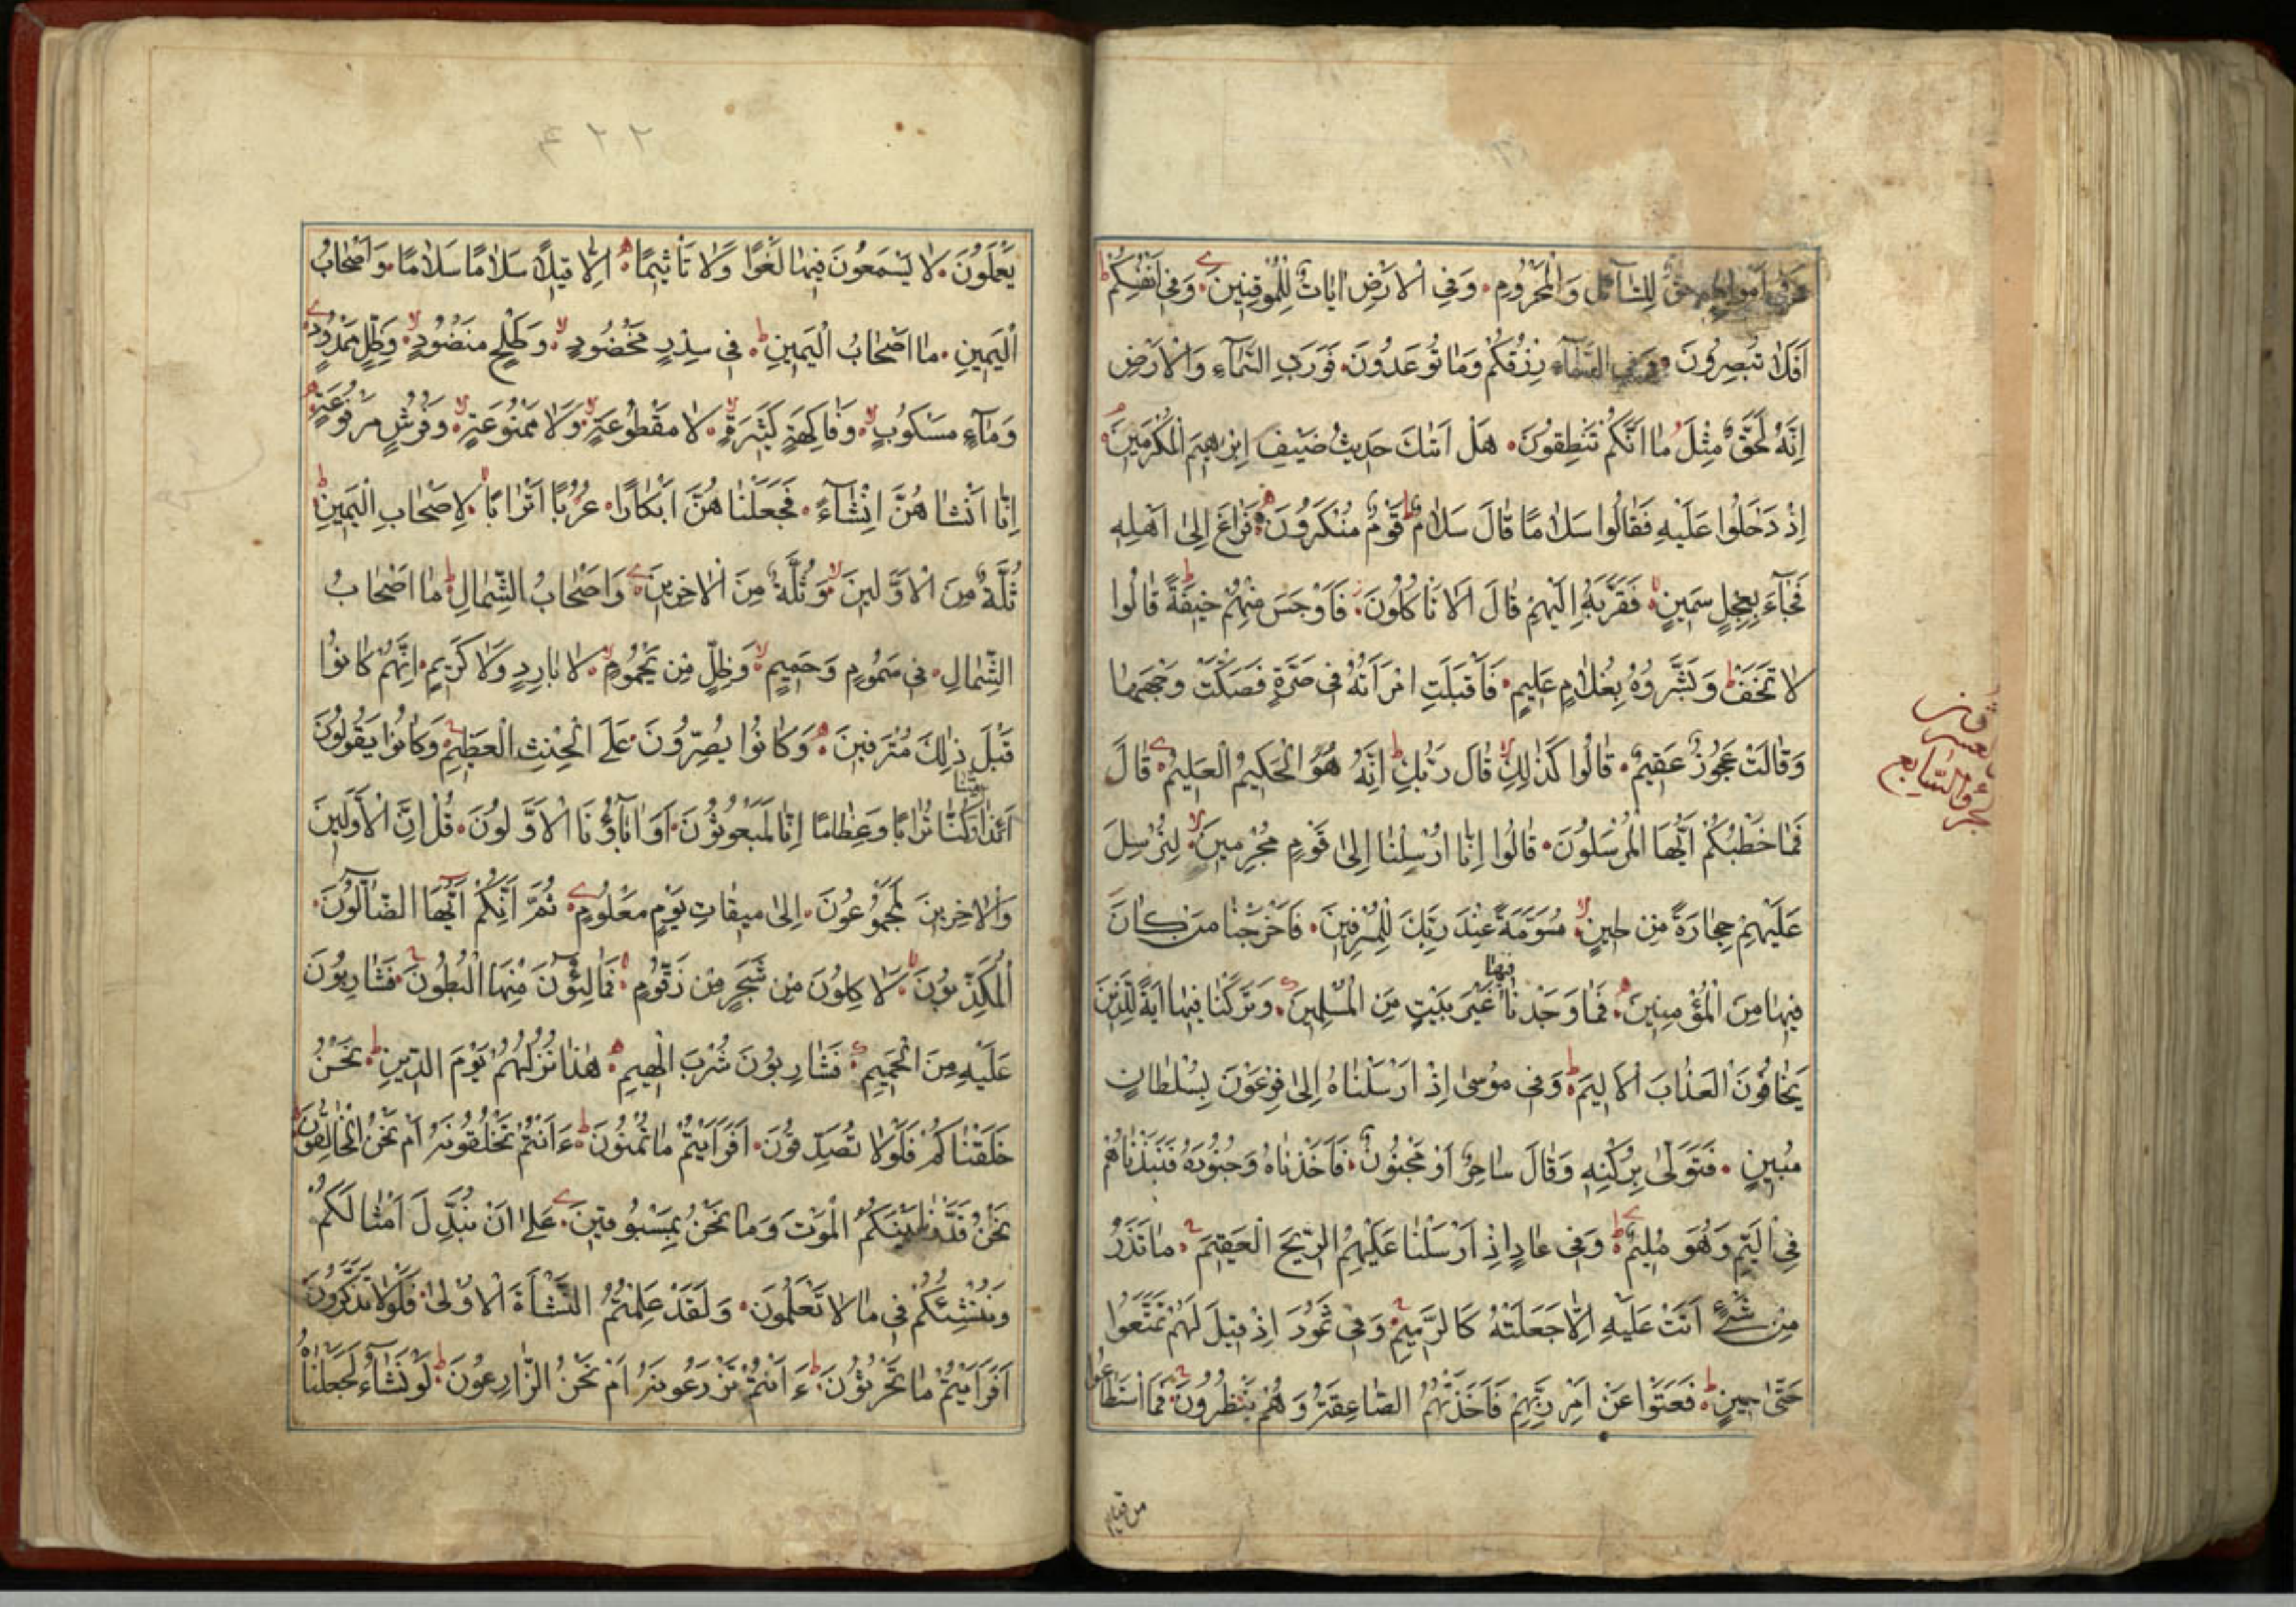 وَفِي اَمْوَالِهِمْ حَقٌّ لِلسَّآئِلِ وَالْمَحْرُومِ وَفِي الْاَرْضِ اٰيَاتٌ لِلْمُوقِنِينَ وَفِي اَنْفُسِكُمْ
اَفَلَا تُبْصِرُونَ وَفِي السَّمَآءِ رِزْقُكُمْ وَمَا تُوعَدُونَ فَوَرَبِّ السَّمَآءِ وَالْاَرْضِ
اِنَّهُ لَحَقٌّ مِثْلَ مَا اَنَّكُمْ تَنْطِقُونَ هَلْ اَتٰكَ حَدِيثُ ضَيْفِ اِبْرٰهِيمَ الْمُكْرَمِينَ
اِذْ دَخَلُوا عَلَيْهِ فَقَالُوا سَلَامًا قَالَ سَلَامٌ قَوْمٌ مُنْكَرُونَ فَرَاغَ اِلٰى اَهْلِهِ
فَجَآءَ بِعِجْلٍ سَمِينٍ فَقَرَّبَهُ اِلَيْهِمْ قَالَ اَلَا تَاْكُلُونَ فَاَوْجَسَ مِنْهُمْ خِيفَةً قَالُوا
لَا تَخَفْ وَبَشَّرُوهُ بِغُلَامٍ عَلِيمٍ فَاَقْبَلَتِ امْرَاَتُهُ فِي صَرَّةٍ فَصَكَّتْ وَجْهَهَا
وَقَالَتْ عَجُوزٌ عَقِيمٌ قَالُوا كَذٰلِكِ قَالَ رَبُّكِ اِنَّهُ هُوَ الْحَكِيمُ الْعَلِيمُ قَالَ
فَمَا خَطْبُكُمْ اَيُّهَا الْمُرْسَلُونَ قَالُوا اِنَّا اُرْسِلْنَا اِلٰى قَوْمٍ مُجْرِمِينَ لِنُرْسِلَ
عَلَيْهِمْ حِجَارَةً مِنْ طِينٍ مُسَوَّمَةً عِنْدَ رَبِّكَ لِلْمُسْرِفِينَ فَاَخْرَجْنَا مَنْ كَانَ
فِيهَا مِنَ الْمُؤْمِنِينَ فَمَا وَجَدْنَا فِيهَا غَيْرَ بَيْتٍ مِنَ الْمُسْلِمِينَ وَتَرَكْنَا فِيهَا اٰيَةً لِلَّذِينَ
يَخَافُونَ الْعَذَابَ الْاَلِيمَ وَفِي مُوسٰى اِذْ اَرْسَلْنَاهُ اِلٰى فِرْعَوْنَ بِسُلْطَانٍ
مُبِينٍ فَتَوَلّٰى بِرُكْنِهِ وَقَالَ سَاحِرٌ اَوْ مَجْنُونٌ فَاَخَذْنَاهُ وَجُنُودَهُ فَنَبَذْنَاهُمْ
فِي الْيَمِّ وَهُوَ مُلِيمٌ وَفِي عَادٍ اِذْ اَرْسَلْنَا عَلَيْهِمُ الرِّيحَ الْعَقِيمَ مَا تَذَرُ
مِنْ شَيْءٍ اَتَتْ عَلَيْهِ اِلَّا جَعَلَتْهُ كَالرَّمِيمِ وَفِي ثَمُودَ اِذْ قِيلَ لَهُمْ تَمَتَّعُوا
حَتّٰى حِينٍ فَعَتَوْا عَنْ اَمْرِ رَبِّهِمْ فَاَخَذَتْهُمُ الصَّاعِقَةُ وَهُمْ يَنْظُرُونَ فَمَا اسْتَطَاعُوا
من قيام
الجزؤ السابع
۴۲۲
يَعْمَلُونَ لَا يَسْمَعُونَ فِيهَا لَغْوًا وَلَا تَاْثِيمًا اِلَّا قِيلًا سَلَامًا سَلَامًا وَاَصْحَابُ
الْيَمِينِ مَا اَصْحَابُ الْيَمِينِ فِي سِدْرٍ مَخْضُودٍ وَطَلْحٍ مَنْضُودٍ وَظِلٍّ مَمْدُودٍ
وَمَآءٍ مَسْكُوبٍ وَفَاكِهَةٍ كَثِيرَةٍ لَا مَقْطُوعَةٍ وَلَا مَمْنُوعَةٍ وَفُرُشٍ مَرْفُوعَةٍ
اِنَّا اَنْشَاْنَاهُنَّ اِنْشَآءً فَجَعَلْنَاهُنَّ اَبْكَارًا عُرُبًا اَتْرَابًا لِاَصْحَابِ الْيَمِينِ
ثُلَّةٌ مِنَ الْاَوَّلِينَ وَثُلَّةٌ مِنَ الْاٰخِرِينَ وَاَصْحَابُ الشِّمَالِ مَا اَصْحَابُ
الشِّمَالِ فِي سَمُومٍ وَحَمِيمٍ وَظِلٍّ مِنْ يَحْمُومٍ لَا بَارِدٍ وَلَا كَرِيمٍ اِنَّهُمْ كَانُوا
قَبْلَ ذٰلِكَ مُتْرَفِينَ وَكَانُوا يُصِرُّونَ عَلَى الْحِنْثِ الْعَظِيمِ وَكَانُوا يَقُولُونَ
اَئِذَا مِتْنَا وَكُنَّا تُرَابًا وَعِظَامًا اِنَّا لَمَبْعُوثُونَ اَوَاٰبَآؤُنَا الْاَوَّلُونَ قُلْ اِنَّ الْاَوَّلِينَ
وَالْاٰخِرِينَ لَمَجْمُوعُونَ اِلٰى مِيقَاتِ يَوْمٍ مَعْلُومٍ ثُمَّ اِنَّكُمْ اَيُّهَا الضَّآلُّونَ
الْمُكَذِّبُونَ لَاٰكِلُونَ مِنْ شَجَرٍ مِنْ زَقُّومٍ فَمَالِئُونَ مِنْهَا الْبُطُونَ فَشَارِبُونَ
عَلَيْهِ مِنَ الْحَمِيمِ فَشَارِبُونَ شُرْبَ الْهِيمِ هٰذَا نُزُلُهُمْ يَوْمَ الدِّينِ نَحْنُ
خَلَقْنَاكُمْ فَلَوْلَا تُصَدِّقُونَ اَفَرَاَيْتُمْ مَا تُمْنُونَ ءَاَنْتُمْ تَخْلُقُونَهُ اَمْ نَحْنُ الْخَالِقُونَ
نَحْنُ قَدَّرْنَا بَيْنَكُمُ الْمَوْتَ وَمَا نَحْنُ بِمَسْبُوقِينَ عَلٰى اَنْ نُبَدِّلَ اَمْثَالَكُمْ
وَنُنْشِئَكُمْ فِي مَا لَا تَعْلَمُونَ وَلَقَدْ عَلِمْتُمُ النَّشْاَةَ الْاُولٰى فَلَوْلَا تَذَكَّرُونَ
اَفَرَاَيْتُمْ مَا تَحْرُثُونَ ءَاَنْتُمْ تَزْرَعُونَهُ اَمْ نَحْنُ الزَّارِعُونَ لَوْ نَشَآءُ لَجَعَلْنَاهُ